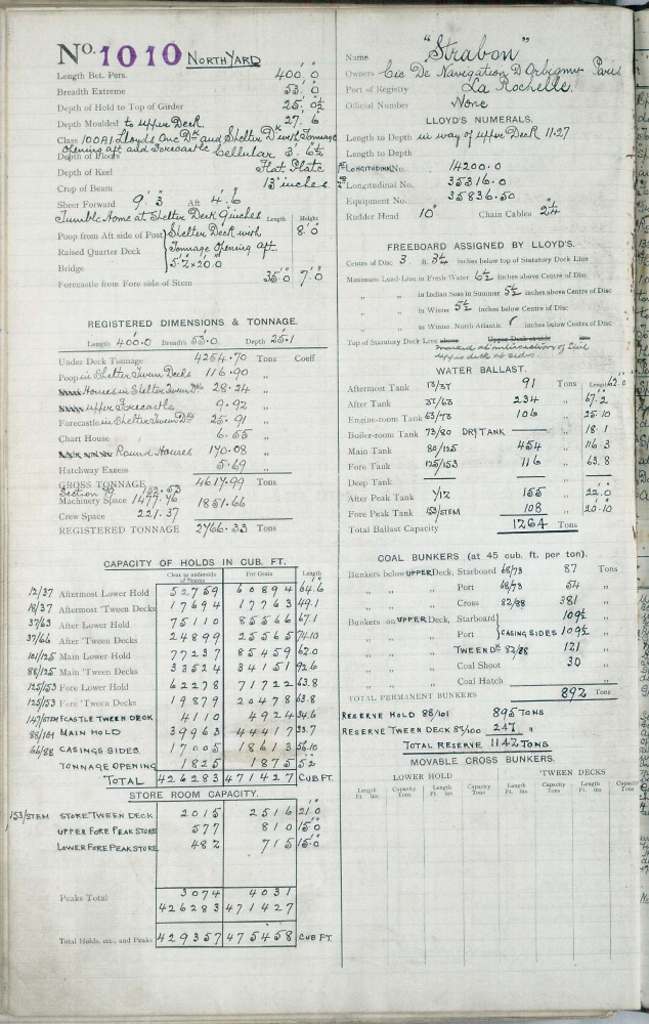 No. 1010 NORTH YARD
Length Bet. Pers. 400' 0"
Breadth Extreme 53' 0"
Depth of Hold to Top of Girder 25' 0½"
Depth Moulded to upper Deck 27' 6
Class 100A1 Lloyds One Dk and Shelter Dk with Tonnage
Opening aft and Forecastle
Depth of Floors Cellular 3' 6½"
Depth of Keel Flat Plate
Crop of Beam 13 inches
Sheer Forward 9' 3" Aft 4' 6
Tumble Home at Shelter Deck 9 inches Length Height
Poop from Aft side of Post Shelter Deck with 8' 0"
Raised Quarter Deck Tonnage Opening aft
Bridge 5' 2" x 20' 0
Forecastle from Fore side of Stem 35' 0" 7' 0"
REGISTERED DIMENSIONS & TONNAGE.
Length 400.0 Breadth 53.0 Depth 25.1
Under Deck Tonnage 4254.70 Tons Coeff
Poop in Shelter Tween Decks 116.90 "
Houses in Shelter Tween Dks 28.24 "
upper Forecastle 9.92 "
Forecastle in Shelter Tween Dks 25.91 "
Chart House 6.55 "
Round Houses 170.08 "
Hatchway Excess 5.69 "
GROSS TONNAGE 4617.99 Tons
Section 79 152.53
Machinery Space 1477.76 1851.66
Crew Space 221.37
REGISTERED TONNAGE 2766.33 Tons
CAPACITY OF HOLDS IN CUB. FT.
For Grain Length
12/37 Aftermost Lower Hold 52759 60894 64.6
18/37 Aftermost 'Tween Decks 17694 17763 49.1
37/63 After Lower Hold 75110 85566 67.1
37/66 After 'Tween Decks 24899 25565 74.10
101/125 Main Lower Hold 77237 85459 62.0
88/125 Main 'Tween Decks 33524 34151 92.6
125/153 Fore Lower Hold 62278 71722 63.8
125/153 Fore 'Tween Decks 19879 20478 63.8
147/STEM FCASTLE TWEEN DECK 4110 4924 34.6
88/101 MAIN HOLD 39963 44417 33.7
66/88 CASINGS SIDES 17005 18613 56.10
TONNAGE OPENING 1825 1875 5.2
TOTAL 426283 471427 CUB FT.
STORE ROOM CAPACITY.
153/STEM STORE 'TWEEN DECK 2015 2516 21.0
UPPER FORE PEAK STORE 577 810 15.0
LOWER FORE PEAK STORE 482 715 15.0
Peaks Total 3074 4031
426283 471427
Total Holds, etc., and Peaks 429357 475458 CUB FT.
Name "Strabon"
Owners Cie De Navigation D'Orbigny Paris
Port of Registry La Rochelle
Official Number None
LLOYD'S NUMERALS.
Length to Depth in way of upper Deck 11.27
Length to Depth
1st LONGITUDINAL No. 14200.0
2nd Longitudinal No. 35316.0
Equipment No. 35836.50
Rudder Head 10" Chain Cables 2¼
FREEBOARD ASSIGNED BY LLOYD'S.
Centre of Disc 3 ft. 3¼ inches below top of Statutory Deck Line
Maximum Load-line in Fresh Water 6½ inches above Centre of Disc
" " in Indian Seas in Summer 5½ inches above Centre of Disc
" " in Winter 5½ inches below Centre of Disc
" " in Winter North Atlantic inches below Centre of Disc
Top of Statutory Deck Line above Upper Deck at side
marked at intersection of
upper deck at side
WATER BALLAST.
Aftermost Tank 13/37 91 Tons Length 62.0
After Tank 37/63 234 " 67.2
Engine-room Tank 63/73 106 " 25.10
Boiler-room Tank 73/80 DRY TANK " 18.1
Main Tank 80/125 454 " 116.3
Fore Tank 125/153 116 " 63.8
Deep Tank "
After Peak Tank 4/12 155 " 22.0
Fore Peak Tank 153/STEM 108 " 20.10
Total Ballast Capacity 1264 Tons
COAL BUNKERS (at 45 cub. ft. per ton).
Bunkers below UPPER Deck, Starboard 68/73 87 Tons
" " " Port 68/73 54 "
" " " Cross 82/88 381 "
Bunkers on UPPER Deck, Starboard 109½ "
" " " Port CASING SIDES 109½ "
" " TWEEN DK 82/88 121 "
" " " Coal Shoot 30 "
" " " Coal Hatch "
TOTAL PERMANENT BUNKERS 892 Tons
RESERVE HOLD 88/101 895 TONS
RESERVE TWEEN DECK 87/100 247 "
TOTAL RESERVE 1142 TONS
MOVABLE CROSS BUNKERS.
LOWER HOLD 'TWEEN DECKS
Length Ft. Ins Capacity Tons Length Ft. Ins Capacity Tons Length Ft. Ins Capacity Tons Length Ft. Ins Capacity Tons